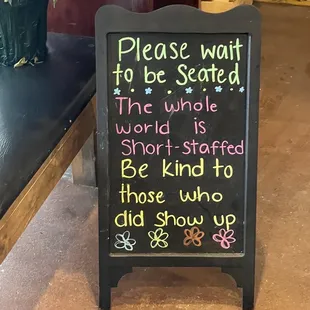 Please wait
to be Seated
The whole
world is
Short-staffed
Be kind to
those who
did show up